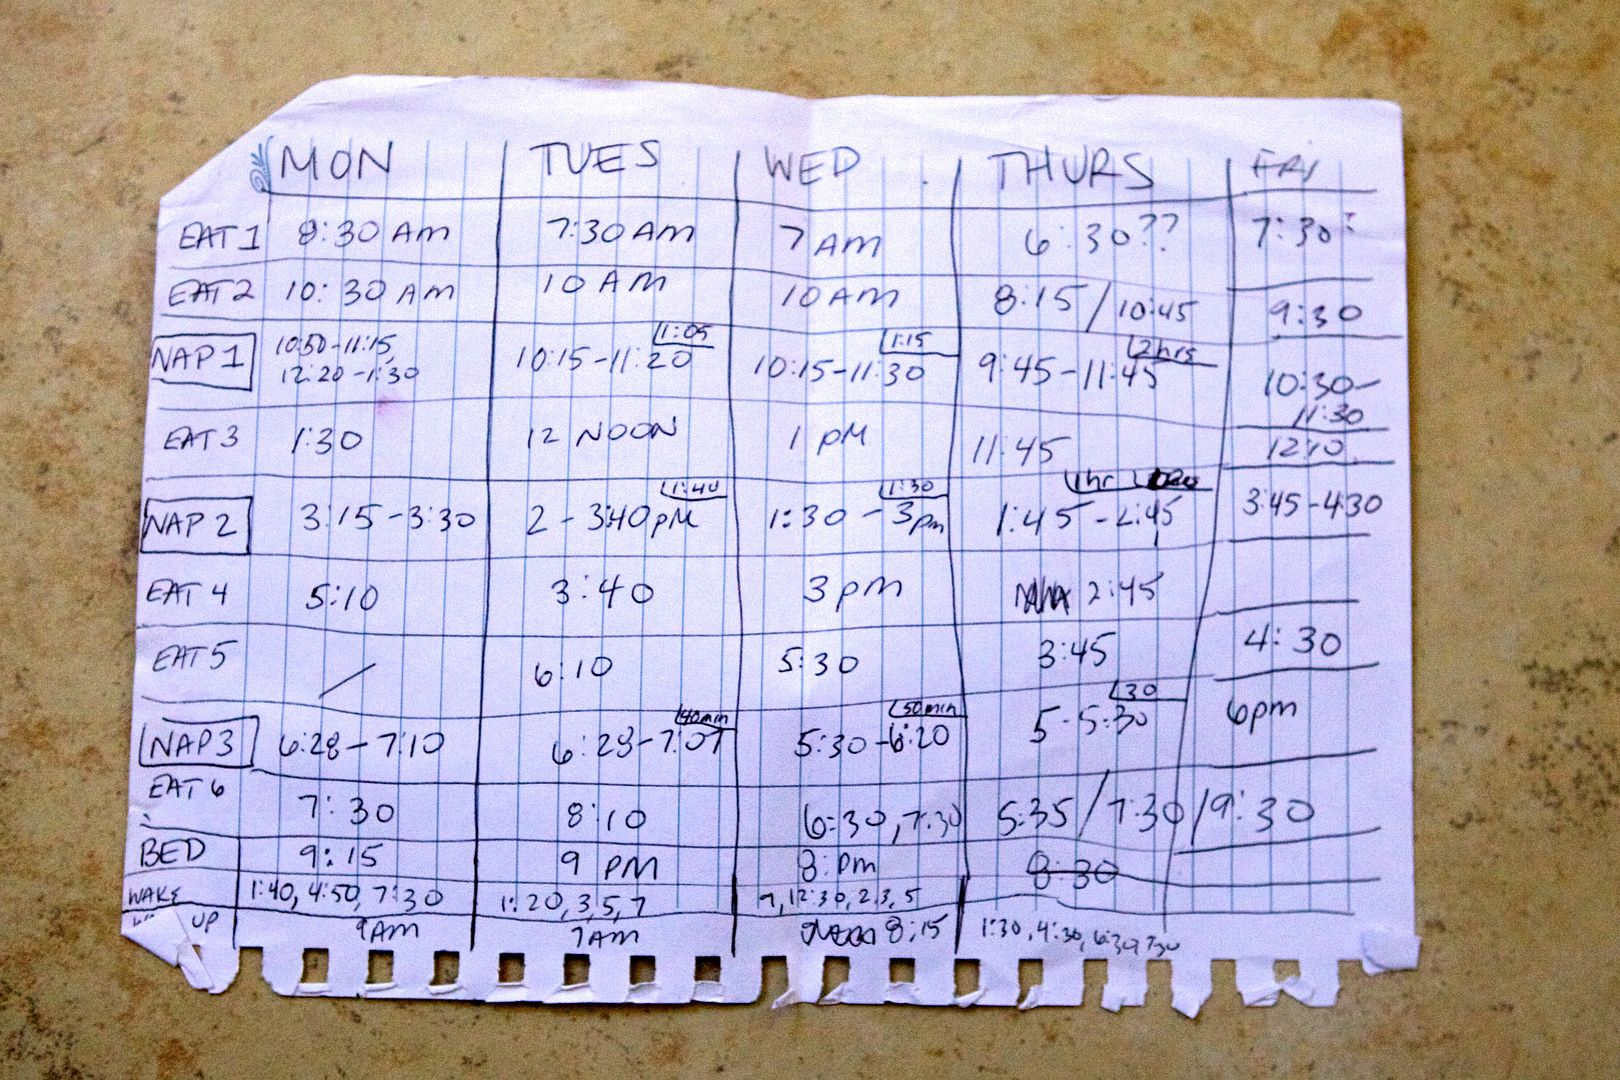 MON TUES WED THURS FRI
EAT 1 8:30 AM 7:30 AM 7 AM 6:30?? 7:30?
EAT 2 10:30 AM 10 AM 10 AM 8:15 / 10:45 9:30
1:05 1:15 2 hrs
NAP 1 10:50-11:15, 10:15-11:20 10:15-11:30 9:45-11:45 10:30-
12:20-1:30 11:30
EAT 3 1:30 12 NOON 1 PM 11:45 12:10
1:40 1:30 1 hr
NAP 2 3:15-3:30 2-3:40 PM 1:30-3pm 1:45-2:45 3:45-4:30
EAT 4 5:10 3:40 3 pm 2:45
EAT 5 / 6:10 5:30 3:45 4:30
40 min 50 min 30
NAP 3 6:28-7:10 6:28-7:07 5:30-6:20 5-5:30 6pm
EAT 6 7:30 8:10 6:30, 7:30 5:35 / 7:30 / 9:30
BED 9:15 9 PM 8: pm 8:30
WAKE 1:40, 4:50, 7:30 1:20, 3, 5, 7 9, 12:30, 2, 3, 5
UP 9AM 7AM 8:15 1:30, 4:30, 6:30, 7:30